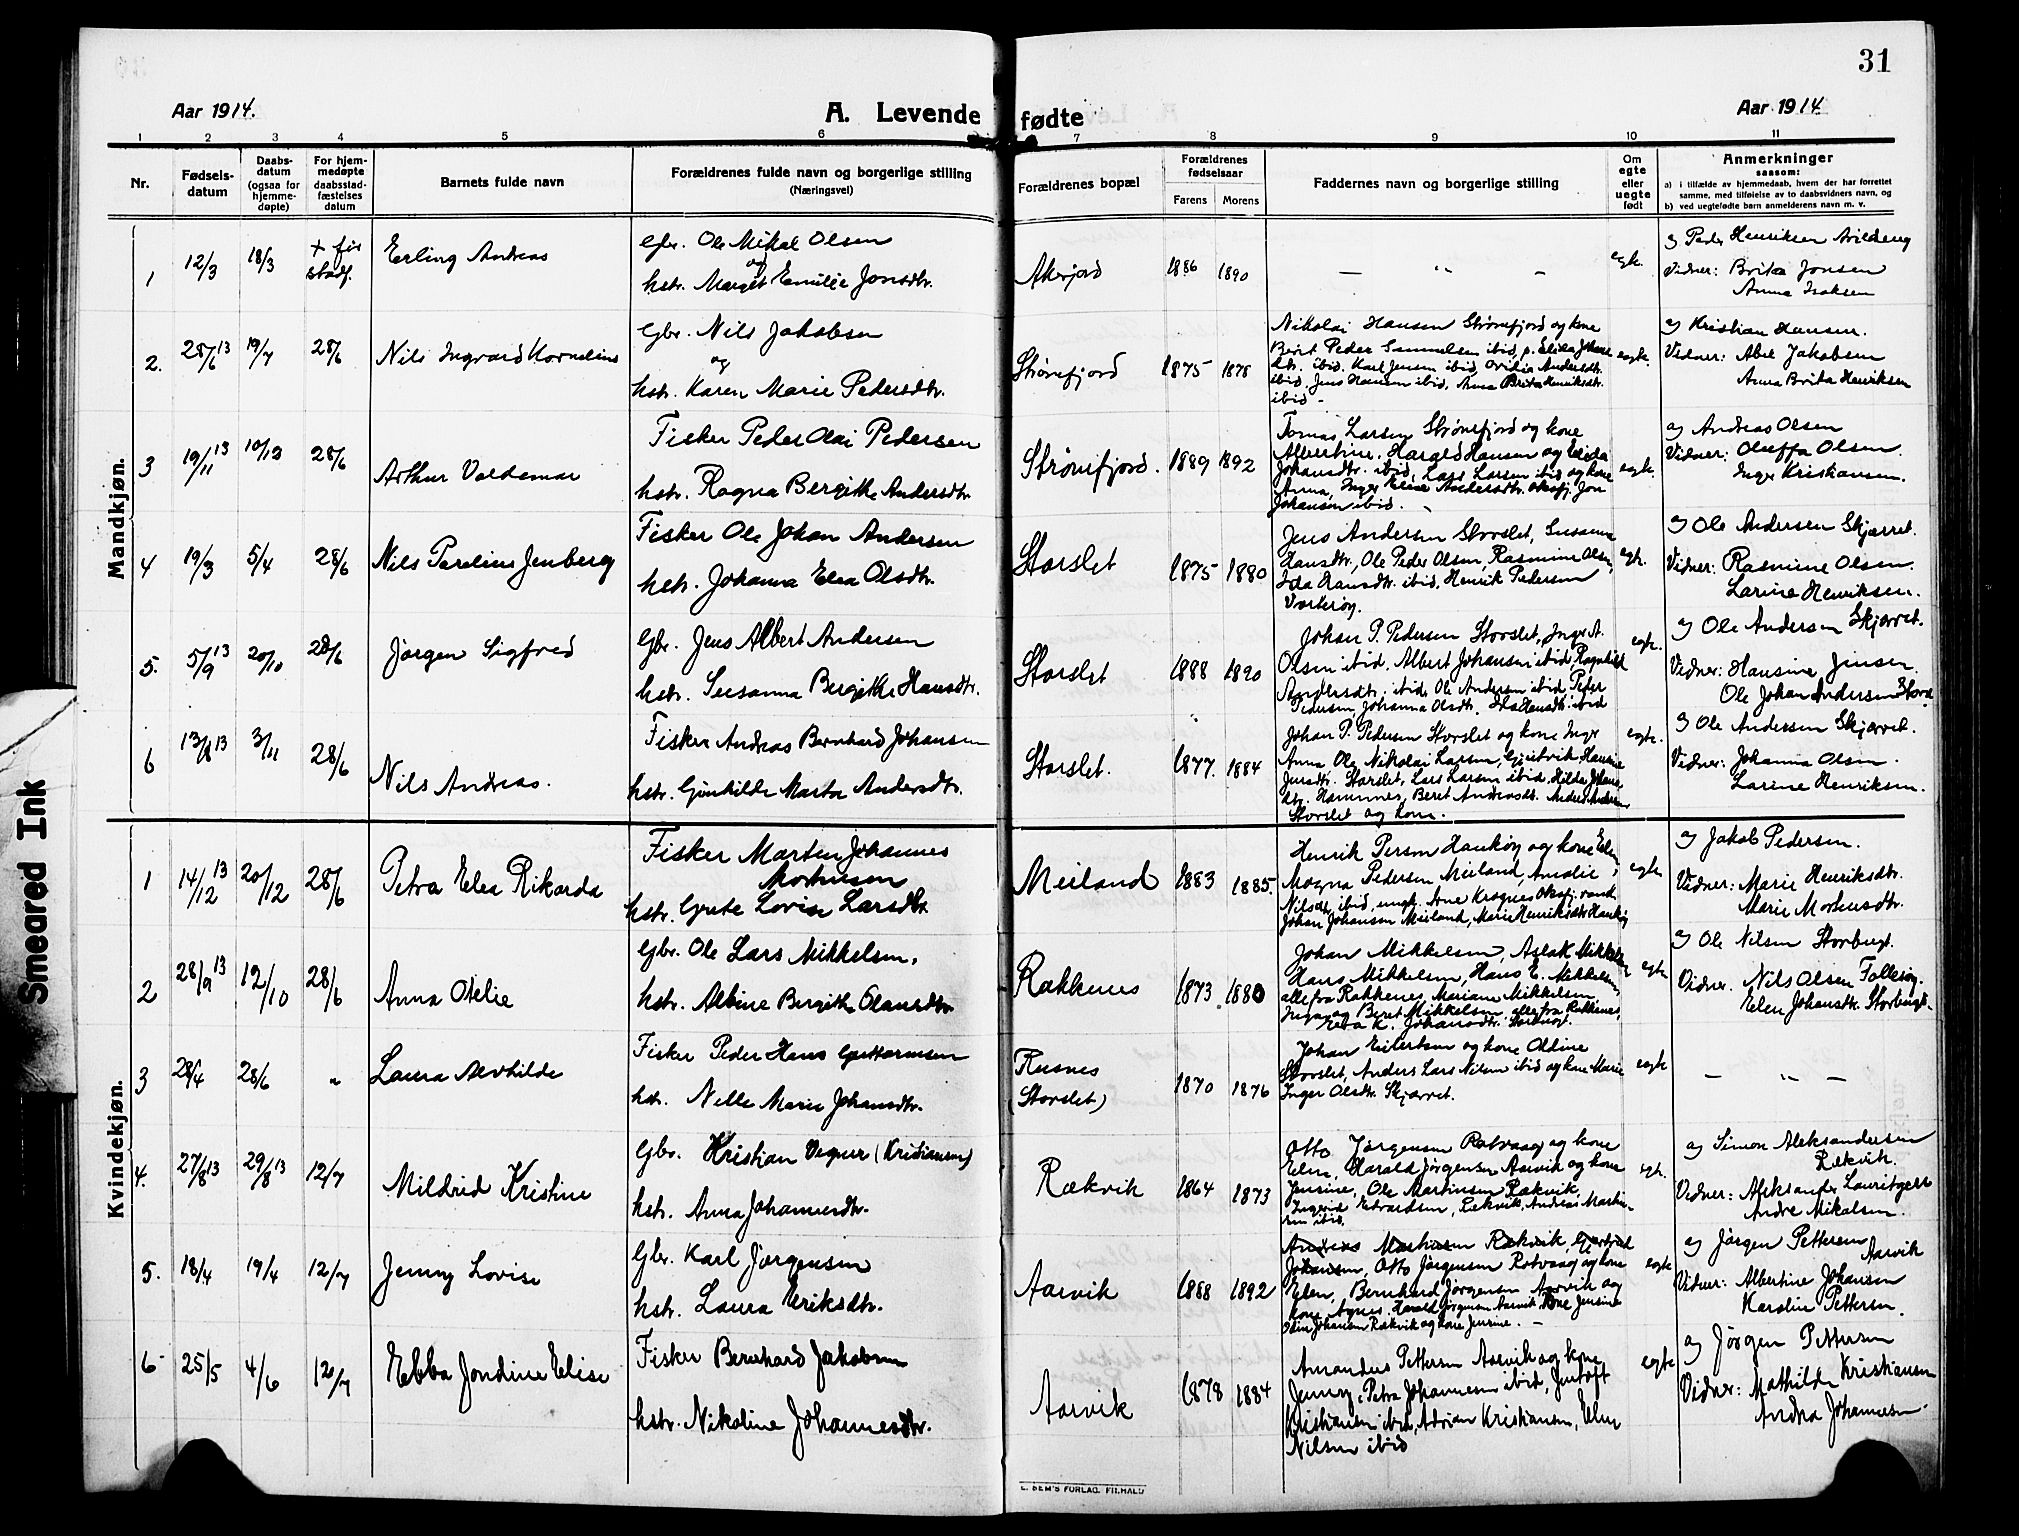 31
Aar 1914.
A. Levende fødte
Aar 1914
1 2 3 4 5 6 7 8 9 10 11
Nr.
Fødsels-
datum
Daabs-
datum
(ogsaa for
hjemme-
døpte)
For hjem-
medøpte
daabsstad-
fæstelses
datum
Barnets fulde navn
Forældrenes fulde navn og borgerlige stilling
(Næringsvei)
Forældrenes bopæl
Forældrenes
fødselsaar
Farens Morens
Faddernes navn og borgerlige stilling
Om
egte
eller
uegte
født
Anmerkninger
saasom:
a) i tilfælde av hjemmedaab, hvem der har forrettet
samme, med tilføielse av to daabsvidners navn, og
b) ved uegtefødte barn anmelderens navn m. v.
Mandkjøn.
1 12/3 18/3 + før stadf. Erling Andreas
Gbr. Ole Mikal Olsen
og
hstr. Marget Emilie Jonsdtr.
Akerjord 1886 1890 — " — egte.
a) Peder Henriksen Avildeng
Vidner: Brita Jonsen
Anna Isaksen
2. 28/6 13 19/7 28/6 Nils Ingvard Kornelius
Gbr. Nils Jakobsen
og
hstr. Karen Marie Pedersdtr.
Strømfjord 1875 1878
Nikolai Hansen Strømfjord og kone
Berit Peder Samuelsen ibid, p. Elida Johans
dtr. ibid. Karl Jensen ibid, Ovidia Andersdtr.
ibid. Jens Hansen ibid, Anna Brita Henriksdtr.
ibid -
egte.
a) Kristian Hansen.
Vidner: Abel Jakobsen
Anna Brita Henriksen
3 19/11 13 10/12 28/6 Arthur Valdemar
Fisker Peder Olai Pedersen
hstr. Ragna Bergitte Andersdtr.
Strømfjord. 1889 1892
Tomas Larsen Strømfjord og kone
Albertine. Harald Hansen og Elida
Johansdtr. ibid, Lars Larsen ibid og kone
Anna, Inger Elise Andersdtr. Oksfj. Jon
Johansen ibid.
egte.
a) Andreas Olsen
Vidner: Oluffa Olsen
Inger Kristiansen.
4 19/3 5/4 28/6 Nils Parelius Jenberg
Fisker Ole Johan Andersen
hstr. Johanna Elea Olsdtr.
Storslet 1875 1880
Jens Andersen Storslet, Susanna
Hansdtr., Ole Peder Olsen, Rasmine Olsen,
Ida Hansdtr. ibid, Henrik Pedersen
Vorterøy.
egte.
a) Ole Andersen Skjærret.
Vidner: Rasmine Olsen.
Larine Henriksen.
5. 5/9 13 20/10 28/6 Jørgen Sigfred
Gbr. Jens Albert Andersen
hstr. Susanna Bergitte Hansdtr.
Storslet 1888 1890
Johan P. Pedersen Storslet, Inger A.
Olsen ibid, Albert Johansen ibid, Ragnhild
Andersdtr. ibid, Ole Andersen ibid, Peder
Pedersen, Johanna Olsdtr. Ida Hansdtr. ibid
egte.
a) Ole Andersen Skjærret.
Vidner: Hansine Jensen
Ole Johan Andersen Storsl.
6 13/8 13 3/11 28/6 Nils Andreas.
Fisker Andreas Bernhard Johansen
hstr. Gunhilde Marta Andersdtr.
Storslet. 1877. 1884
Johan P. Pedersen Storslet og kone Inger
Anna Ole Nikolai Larsen, Hansine
Jensdtr. Storslet, Lars Larsen ibid, Hilda Johans
dtr. Hamnnes, Beret Andreasdtr. Anders Andersen
Storslet og kone.
egte.
a) Ole Andersen Skjærret.
Vidner: Johanna Olsen.
Larine Henriksen.
Kvindekjøn.
1 14/12 13 20/12 28/6 Petra Elea Rikarda
Fisker Morten Johannes
Mortensen
hstr. Grete Lovise Larsdtr.
Meiland 1883 1885.
Henrik Person Haukøy og kone Elen,
Magna Pedersen Meiland, Amalie
Nilsdtr. ibid, ungk. Arne Kragnes Oksfj.vand
Johan Johansen Meiland, Marie Henriksdtr. Haukøy
egte
a) Jakob Pedersen.
Vidner: Marie Henriksdtr.
Marie Mortensdtr.
2 28/9 13 12/10 28/6 Anna Otelie
Gbr. Ole Lars Mikkelsen.
hstr. Albine Bergitte Olausdtr.
Rakkenes 1873. 1880
Johan Mikkelsen, Aslak Mikkelsen
Hans Mikkelsen, Hans E. Mikkelsen,
alle fra Rakkenes, Mariane Mikkelsen
Inga og Beret Mikkelsen, alle fra Rakkenes,
Elea K. Johansdtr. Storbugt.
egte
a) Ole Nilsen Storbugt.
Vidner. Nils Olsen Follesøy.
Elen Johansdtr. Storbugt.
3 28/4 28/6 " Laura Alvhilde
Fisker Peder Hans Guttormsen
hstr. Nelle Marie Johansdtr.
Fusnes
(Storslet) 1870 1876
Johan Eilertsen og kone Oldine
Storslet, Anders Lars Nilsen ibid og kone Marie
Inger Olsdtr. Skjærret.
egte — " —
4. 27/8 13 29/8 13 12/7 Mildrid Kristine
Gbr. Kristian Vegner (Kristiansen)
hstr. Anna Johannesdtr.
Rækvik 1864 1873
Otto Jørgensen Rotvaag og kone
Elen, Harald Jørgensen Aarvik og kone
Jensine, Ole Martinsen Rækvik,
Ingerid Edvardsen, Lækvik, Andreas Martin-
sen ibid.
egte.
a) Simon Aleksandersen
Rækvik.
Vidner: Aleksander Lauritzen
Andre Mikalsen.
5. 18/4 19/4 12/7 Jenny Lovise
Gbr. Karl Jørgensen
hstr. Laura Eriksdtr.
Aarvik 1888 1892
Andreas Martinsen Rækvik, Gjertrud
Johansen, Otto Jørgensen Rotvaag og kone
Elen, Bernhard Jørgensen Aarvik og
kone Agnes. Harald Jørgensen Aarvik kone Jensine
Odin Johansen Rækvik og kone Jensine. —
egte
a) Jørgen Pettersen
Aarvik
Vidner: Albertine Johansen
Karoline Pettersen.
6 25/5 4/6 12/7 Ebba Jondine Elise
Fisker Bernhard Jakobsen
hstr. Nikoline Johannesdtr.
Aarvik 1878 1884
Amandus Pettersen Aarvik og kone
Jenny, Petra Johannesen ibid, Jentoft
Kristiansen ibid, Adrian Kristiansen, Elen
Nilsen ibid
egte
a) Jørgen Pettersen
Vidner: Mathilde Kristiansen
Andrea Johannesen.
E. SEM'S FORLAG. FR.HALD
Smeared Ink